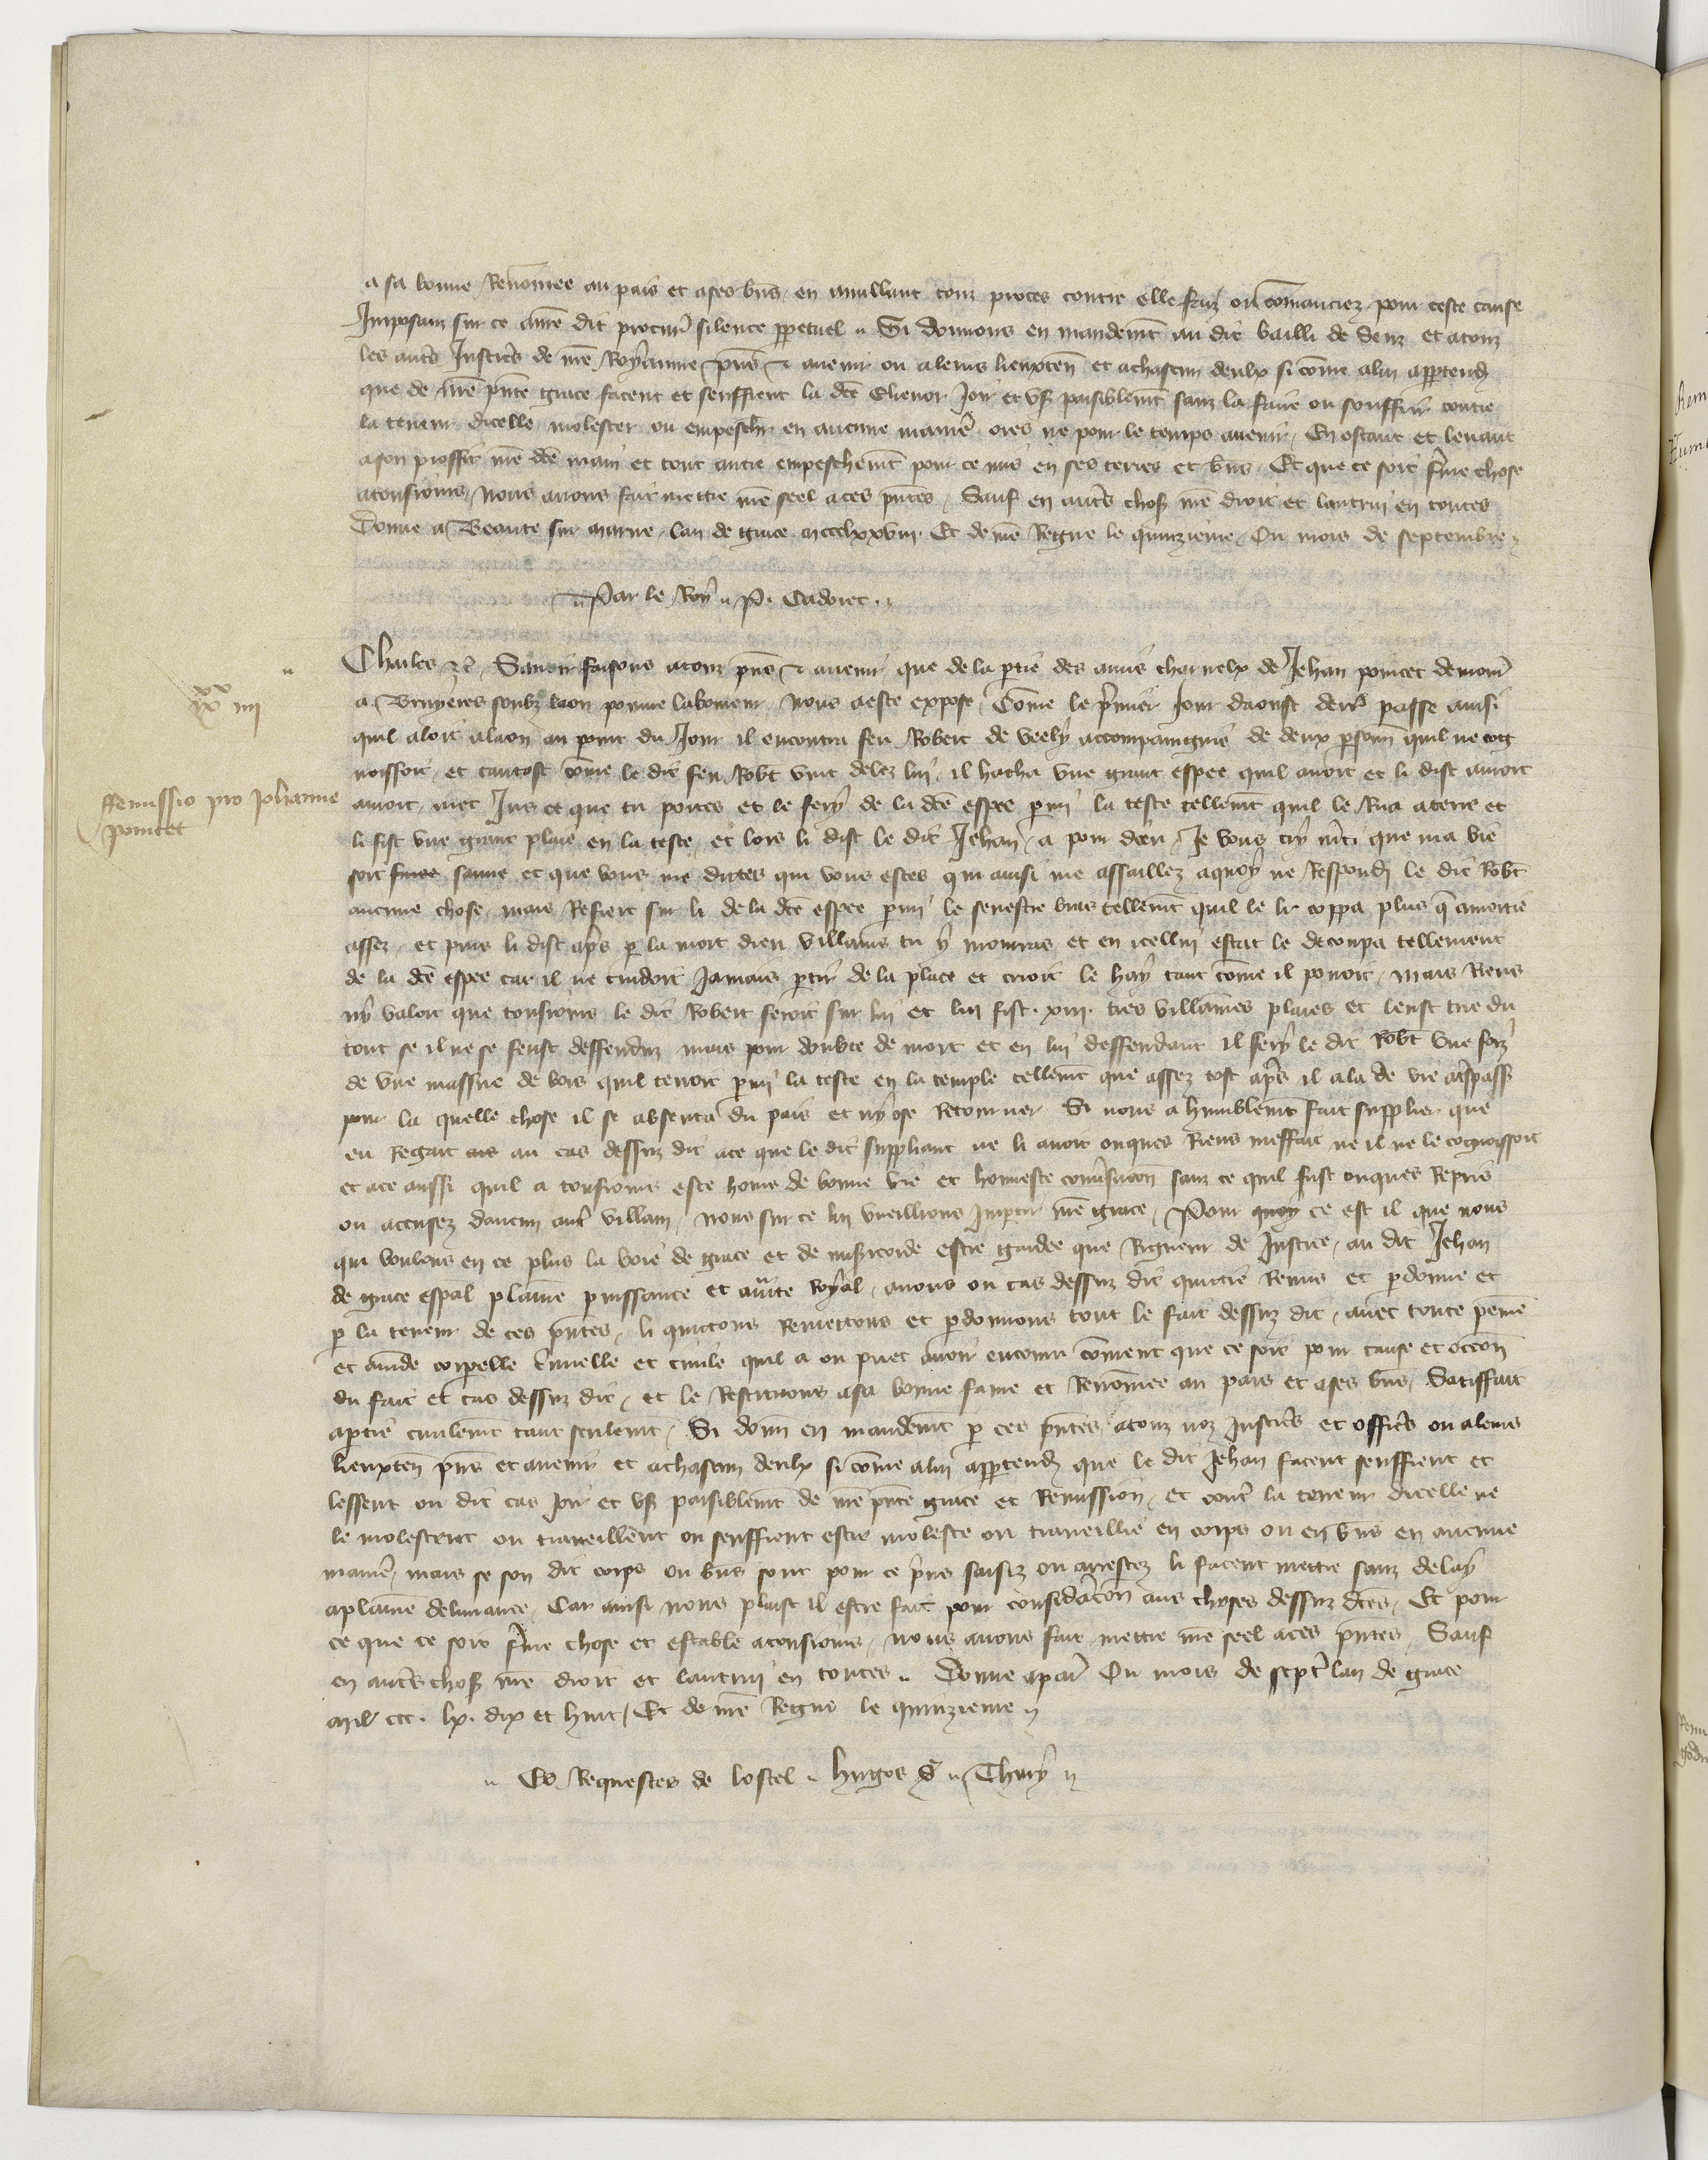 a sa bonne Renommee au pais et a ses bn̄s en anullant touz proces contre elle faiz ou cōmanciez pour ceste cause
Imposanz sur ce a nr̄e dit procur̄ silence perpetuel Si donnons en mandemt̄ au dit bailli de Senz et a touz
les autr̄s Justic̄s de nr̄e Royaume pn̄s et avenir ou a leurs lieuxten̄ et a chascun deulx si cōme a lui appartend̄
que de nr̄e pn̄te grace facent et seuffrent la dc̄e Elienor Joir et us̄ paisiblemt̄ sanz la faire ou souffrir contre
la teneur dicelle molester ou empeschr̄ en aucune manier̄ ores ne pour le temps avenir En ostant et levant
a son proffit nr̄e dc̄e main et tout autre empeschemt̄ pour ce mis en ses terres et bn̄s Et que ce soit ferme chose
a tousiours Nous avons fait mettre nr̄e seel a ces pn̄tes Sauf en autr̄s chos̄ nr̄e droit et lautrui en toutes
Donne a Beaute sur marne lan de grace mccclxxviii Et de nr̄e Regne le quinzieme Ou mois de septembre
Par le Roy P. Cadoret
Charles et c̄ Savoir faisons a touz pn̄s et avenir que de la partie des amis charnelx de Jehan poincet demour̄
a Bruyeres soubz laon povre laboureur nous a este expose Cōme le premier Jour daoust derr̄ passe ainsi
quil aloit a laon au point du Jour il encontra feu Robert de Veely accompaingnie de deux person̄ quil ne cog
noissoit et tantost cōme le dit feu Robt̄ vint delez lui il hacha une grant espee quil avoit et li dist avoit
avoit met Jus ce que tu portes et le fery de la dc̄e espee parmi la teste tellemt̄ quil le Rua a terre et
le fist une grant plaie en la teste et lors li dist le dit Jehan a pour dieu Je vous cry mc̄i que ma vie
soit sauve et que vous me dictes qui vous estes qui ainsi me assaillez a quoy ne Respond̄ le dit Robt̄
aucune chose mais Refiert sur li de la dc̄e espee parmi le senestre bras tellemt̄ quil le li coppa plus q̄ a moitie
assez et puis li dist apr̄s par la mort dieu villains tu y mourras et en icellui estat le decoupa tellement
de la dc̄e espee car il ne cuidoit Jamais partir de la place et crioit le hay tant cōme il povoit mais Riens
ny valoit que tousiours le dit Robert feroit sur lui et lui fist xiii tres villaines plaies et leust tue du
tout se il ne se feust deffenduz mais pour doubte de mort et en lui deffendant il fery le dit Robt̄ une foiz
de une massue de bois quil tenoit parmi la teste en la temple tellemt̄ que assez tost apr̄s il ala de vie a tr̄spass̄
pour la quelle chose il se absenta du pais et ny ose Retourner Si nous a humblemt̄ fait supplier que
eu Regart au cas dessuz dit a ce que le dit suppliant ne li avoit onques Riens meffait ne il ne le cognoissoit
et a ce aussi quil a tousiours este home de bonne vie et honneste conversacōn sanz ce quil fust onques Repris
ou accusez daucun autr̄ villain nous sur ce lui vueillions Impartir nr̄e grace Pour quoy ce est il que nous
qui voulons en ce plus la voie de grace et de misericorde estre gardee que Rigueur de Justice au dit Jehan
de grace esp̄al plaine puissance et auct̄e Royal avons ou cas dessuz dit quittie Remis et pardonne et
par la teneur de ces pn̄tes li quittons Remettons et pardonnons tout le fait dessuz dit avec toute peine
et am̄de corporelle cr̄iminelle et civile quil a ou puet avoir encouru cōment que ce soit pour cause et occōn
du fait et cas dessuz dit et le Restituons a sa bonne fame et Renōmee au pais et a ses bn̄s Satiffait
a partie civilemt̄ tant seulemt̄ Si donn̄ en mandemt̄ par ces pn̄tes a touz noz Justic̄s et offic̄s ou a leurs
lieuxten̄ pn̄s et avenir et a chascun deulx si cōme a lui appartend̄ que le dit Jehan facent seuffrent et
lessent ou dit cas Joir et us̄ paisiblemt̄ de nr̄e pn̄te grace et Remission et contr̄ la teneur dicelle ne
le molestent ou traveillent ou seuffrent estre moleste ou traveillie en corps ou en bn̄s en aucune
manier̄ mais se son dit corps ou bn̄s sont pour ce pris saisiz ou arrestez li facent mettre sanz delay
a plaine delivrance Car ainsi nous plaist il estre fait pour consideracōn aus choses dessuz dc̄es Et pour
ce que ce soit ferme chose et estable a tousiours nous avons fait mettre nr̄e seel a ces pn̄tes Sauf
en autr̄s chos̄ nr̄e droit et lautrui en toutes Donne a par̄ Ou mois de sept̄ lan de grace
mil ccc lx dix et huit Et de nr̄e Regne le quinzieme
Es Requestes de lostel Hugos Thury
xx
iiii
Remissio pro Johanne
poincet